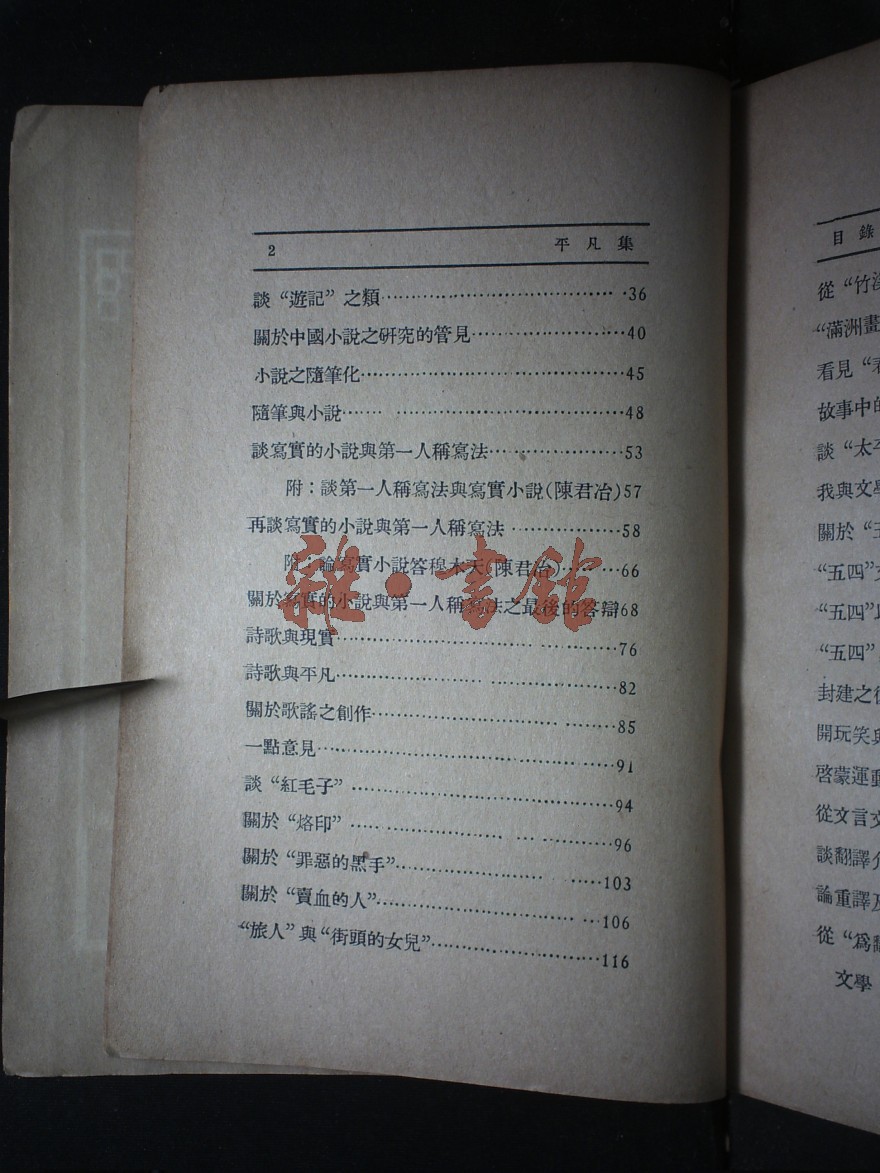 2 平凡集
談“遊記”之類·····················36
關於中國小說之研究的管見·····················40
小說之隨筆化·····················45
隨筆與小說·····················48
談寫實的小說與第一人稱寫法·····················53
附：談第一人稱寫法與寫實小說(陳君冶)57
再談寫實的小說與第一人稱寫法·····················58
附：論寫實小說答穆木天(陳君冶)·········66
關於寫實的小說與第一人稱寫法之最後的答辯68
詩歌與現實·····················76
詩歌與平凡·····················82
關於歌謠之創作·····················85
一點意見·····················91
談“紅毛子”·····················94
關於“烙印”·····················96
關於“罪惡的黑手”·····················103
關於“賣血的人”·····················106
“旅人”與“街頭的女兒”·····················116
雜·書館
目錄
從“竹
“滿洲畫
看見“看
故事中的
談“太平
我與文學
關於“五
“五四”文
“五四”
“五四”
封建之
開玩笑與
啓蒙運動
從文言文
談翻譯介
論重譯及
從“爲翻
文學